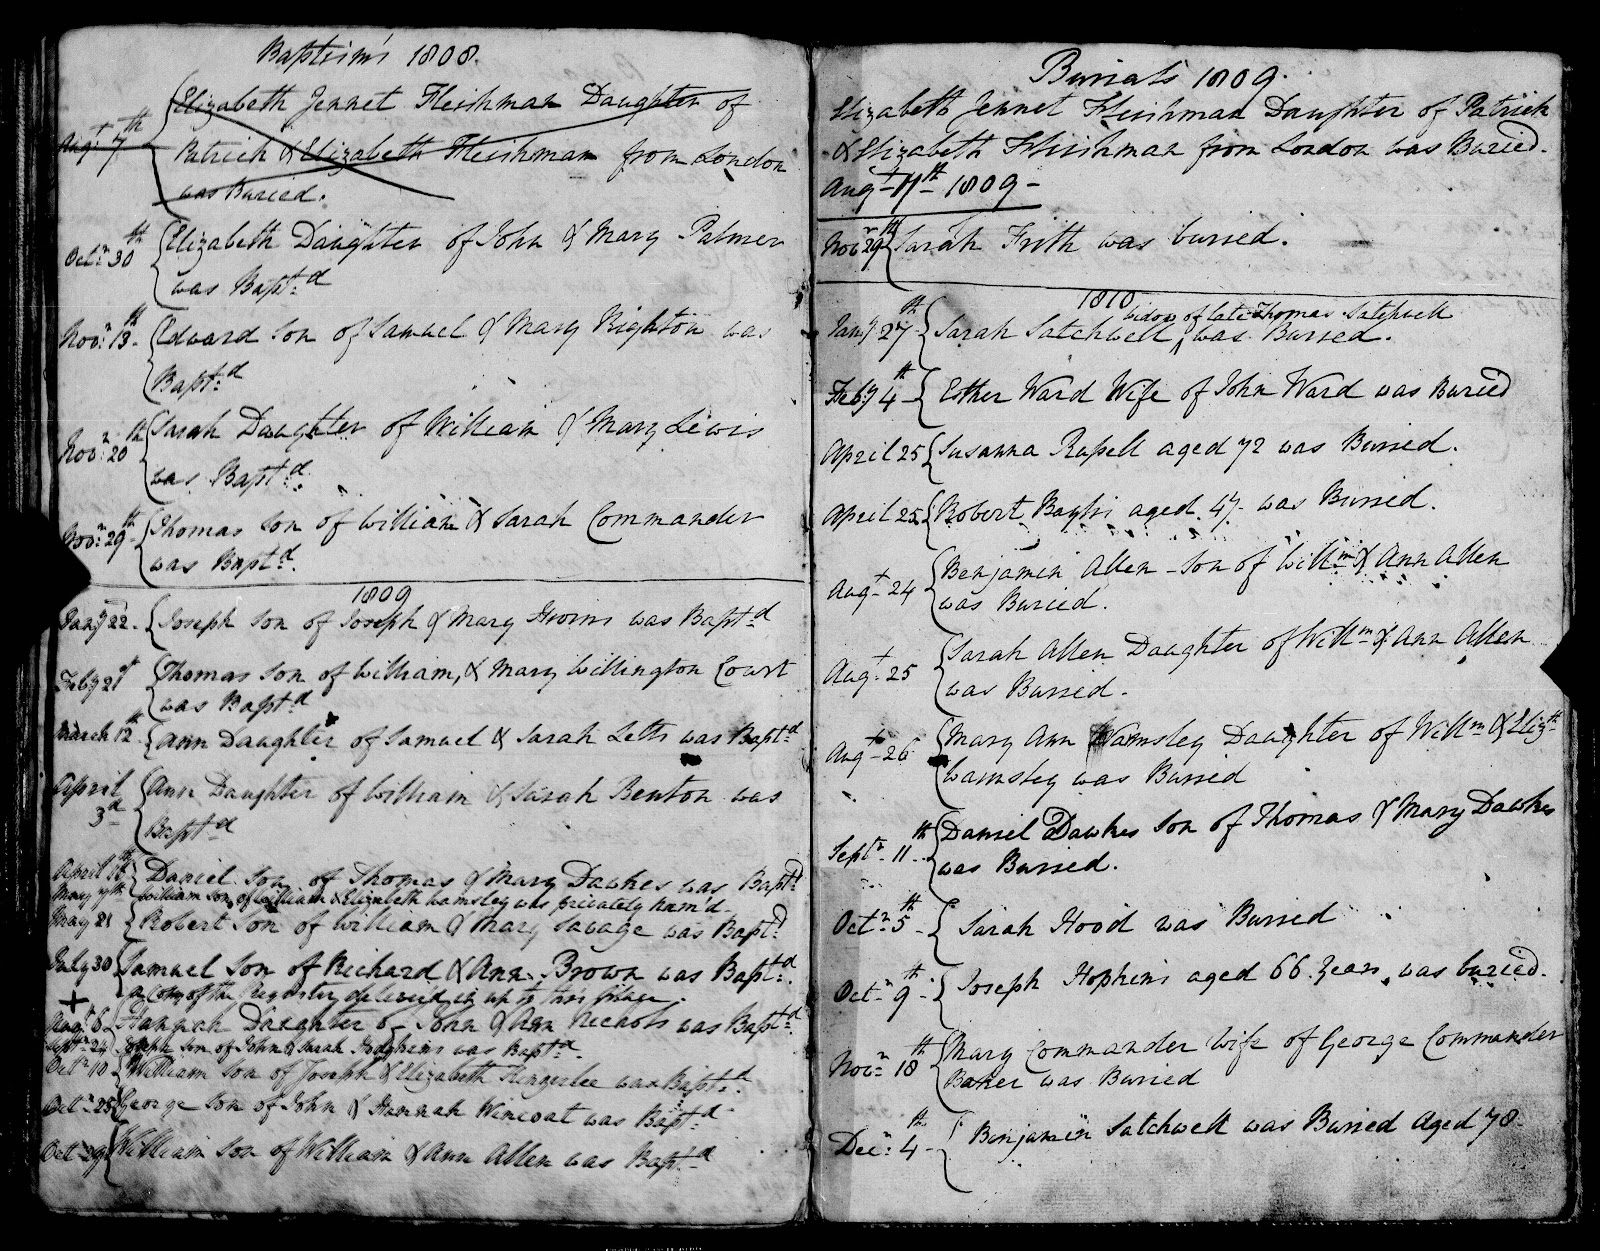 Baptism's 1808.
Elizabeth Jennet Fleishman Daughter of
Augt 7th
Patrick & Elizabeth Fleishman from London
was Buried.
Octr 30th Elizabeth Daughter of John & Mary Palmer
was Baptd
Novr 13th Edward Son of Samuel & Mary Righton was
Baptd
Novr 20th Sarah Daughter of William & Mary Lewis
was Baptd
Novr 29th Thomas Son of William & Sarah Commander
was Baptd
1809
Jany 22 Joseph Son of Joseph & Mary was Baptd
Feby 21st Thomas Son of William, & Mary Willington Court
was Baptd
March 12th Ann Daughter of Samuel & Sarah Letts was Baptd
April 3d Ann Daughter of William & Sarah Benton was
Baptd
April 16th Daniel Son of Thomas & Mary Dawkes was Baptd
May 7th William Son of William & Elizabeth Wamsley was privately nam'd
May 21 Robert Son of William & Mary Savage was Baptd
July 30 Samuel Son of Richard & Ann Brown was Baptd
a Copy of the Register deliver'd in up to this place.
Augt 6 Hannah Daughter of John & Ann Nichols was Baptd
Septr 24 Joseph Son of John & Sarah Hodgkins was Baptd
Octr 10 William Son of Joseph & Elizabeth Kingerlee was Baptd
Octr 25 George Son of John & Hannah Wincoat was Baptd
Octr 29 William Son of William & Ann Allen was Baptd
Burials 1809.
Elizabeth Jennet Fleishman Daughter of Patrick
& Elizabeth Fleishman from London was Buried.
Augt 7th 1809
Novr 29th Sarah Frith was buried.
1810
widow of late Thomas Satchwell
Jany 27th Sarah Satchwell ^ was Buried.
Feby 4th Esther Ward Wife of John Ward was Buried
April 25 Susanna Rusell aged 72 was Buried.
April 25 Robert aged 47 was Buried.
Benjamin Allen Son of Willm & Ann Allen
Augt 24
was Buried.
Sarah Allen Daughter of Willm & Ann Allen
Augt 25
was Buried.
Mary Ann Wamsley Daughter of Willm & Elizth
Augt 26
Wamsley was Buried
Daniel Dawkes Son of Thomas & Mary Dawkes
Septr 11th
was Buried.
Octr 5th Sarah Hood was Buried
Octr 9th Joseph Hopkins aged 66 Years, was buried.
Mary Commander Wife of George Commander
Novr 18th
Baker was Buried
Decr 4th Benjamin Satchwell was Buried Aged 78